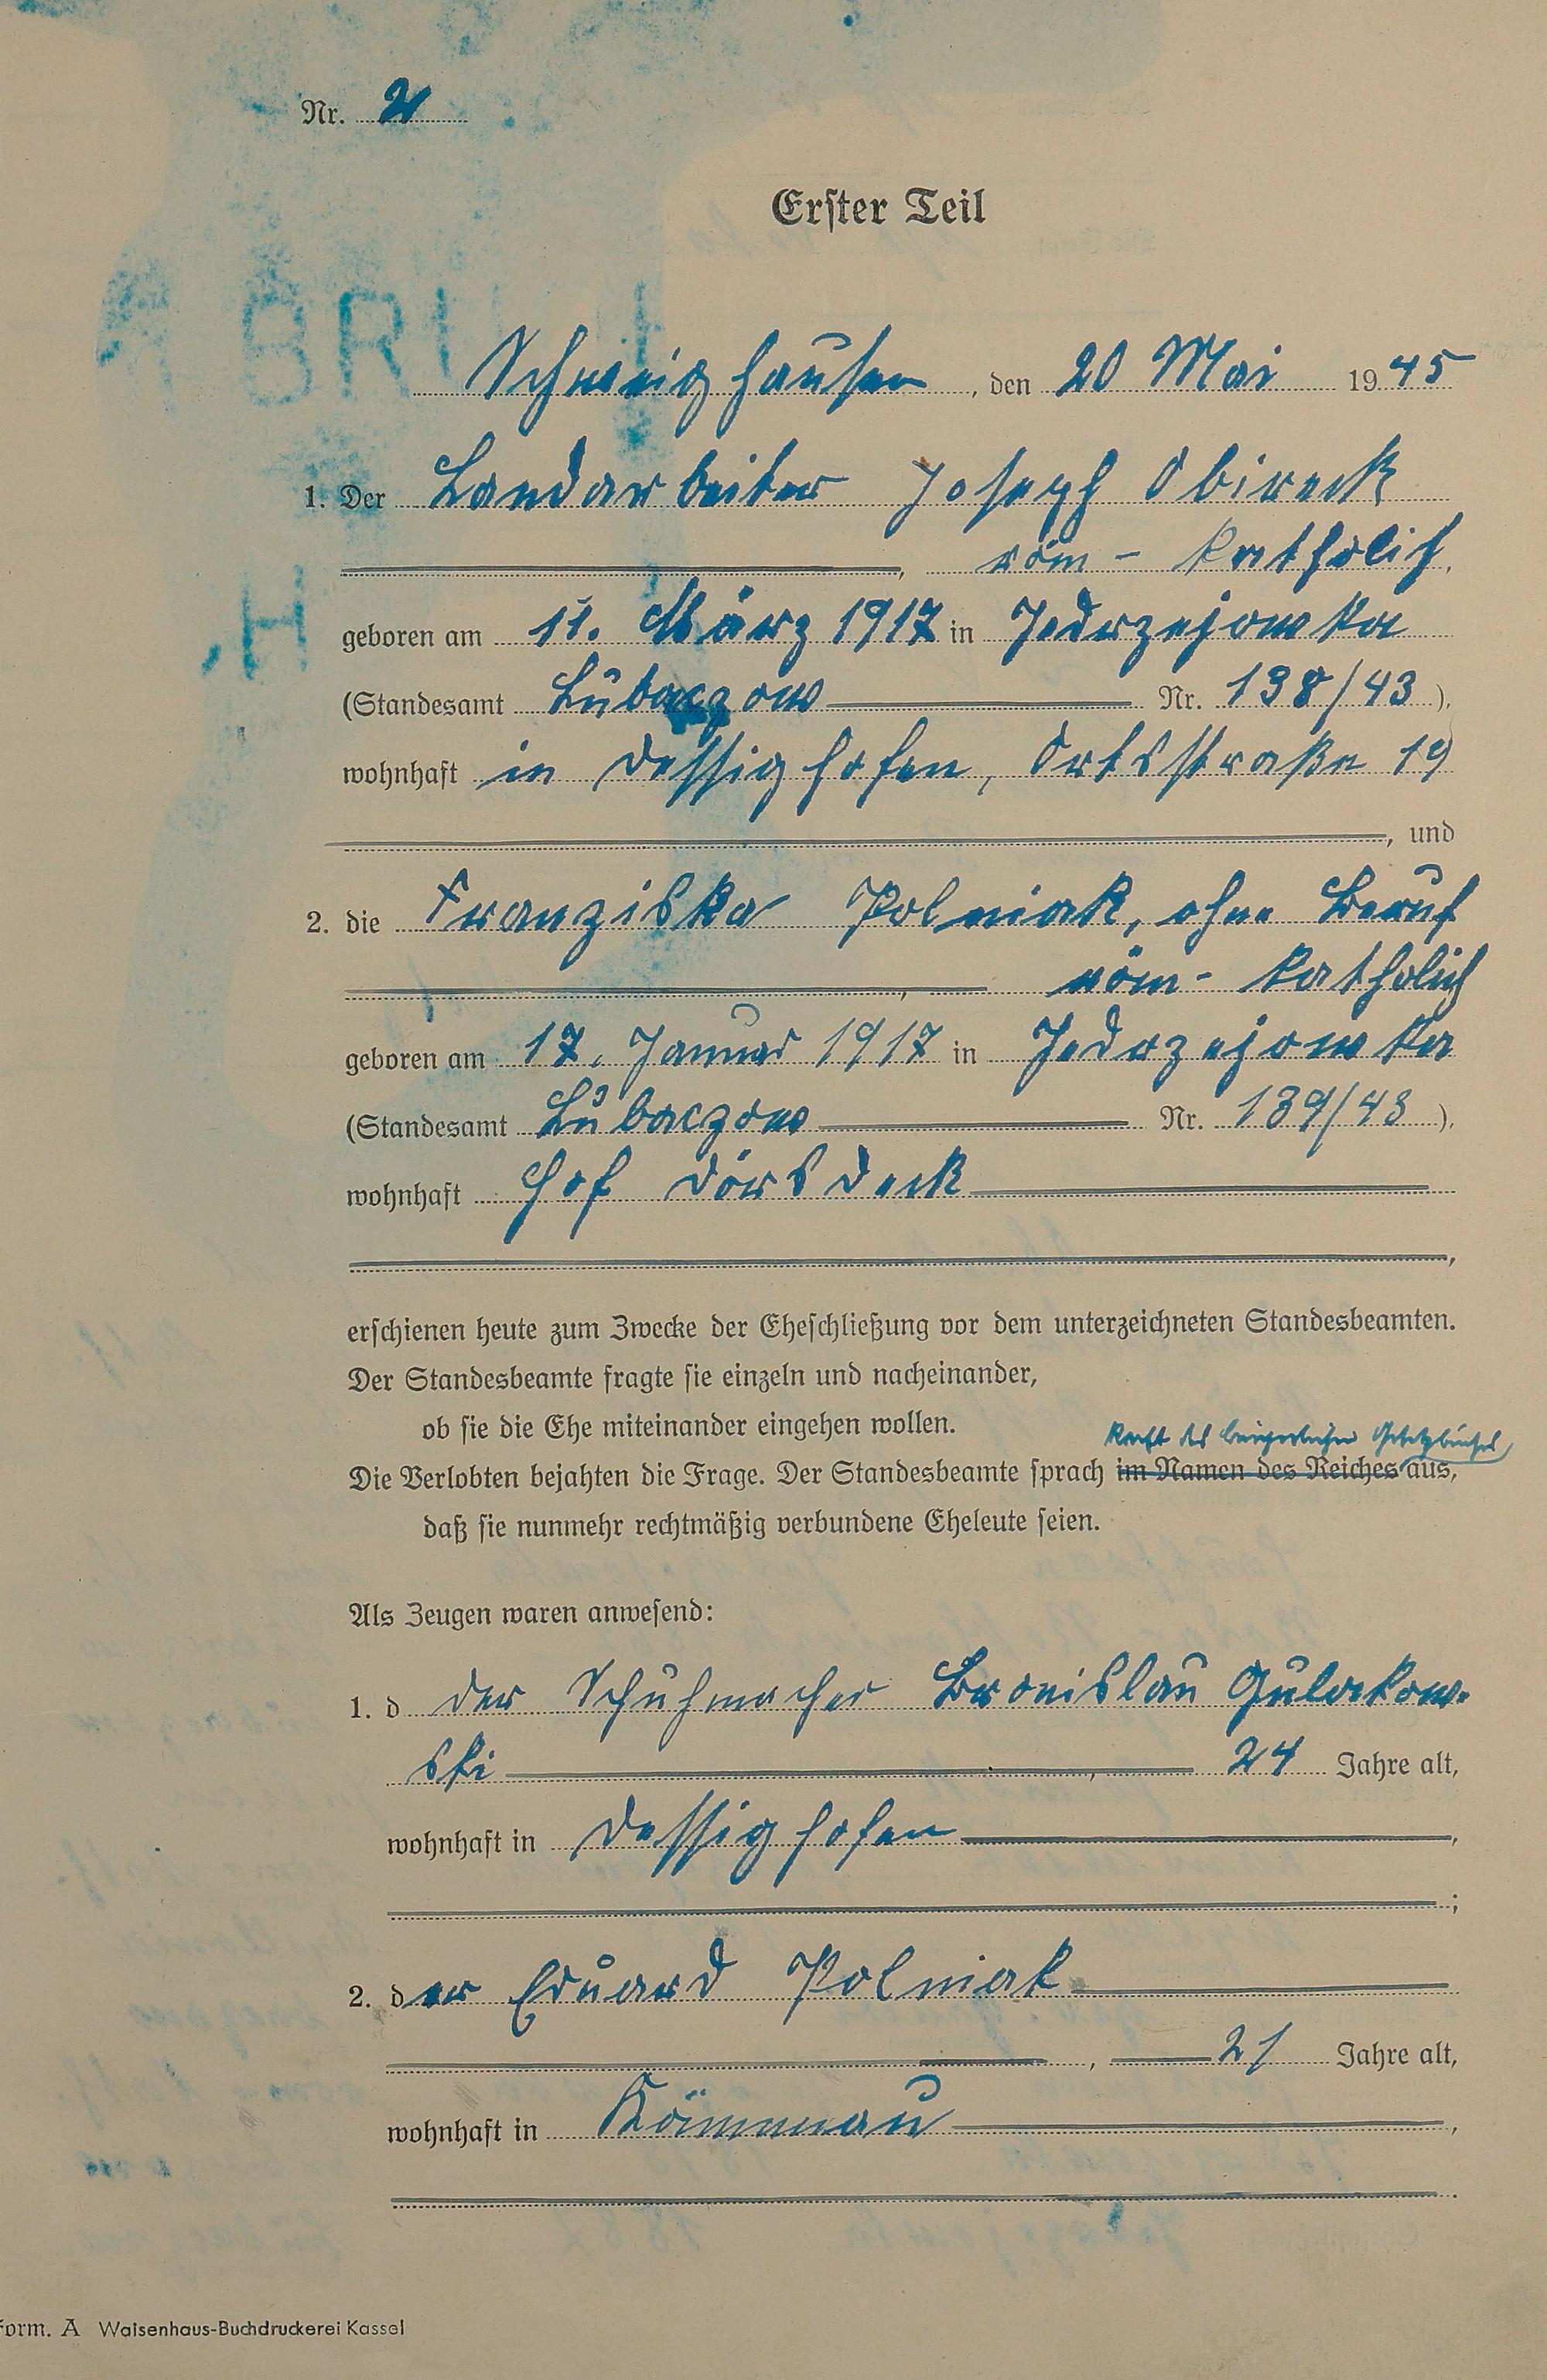 Nr. 2
Erster Teil
BRI
Schweighausen, den 20 Mai 1945
1. Der Landarbeiter Joseph Obireck
, röm - katholisch,
H
geboren am 11. März 1917 in Jedrzejowka
(Standesamt Lubaczow Nr. 138/43),
wohnhaft in Dessighofen, Ortsstraße 19
, und
2. die Franziska Polniak, ohne Beruf
, röm- katholich
geboren am 17. Januar 1917 in Jedrzejowka
(Standesamt Lubaczow Nr. 139/43),
wohnhaft Hof Dörsdeck
,
erschienen heute zum Zwecke der Eheschließung vor dem unterzeichneten Standesbeamten.
Der Standesbeamte fragte sie einzeln und nacheinander,
ob sie die Ehe miteinander eingehen wollen.
kraft des bürgerlichen Gesetzbuches
Die Verlobten bejahten die Frage. Der Standesbeamte sprach im Namen des Reiches aus,
daß sie nunmehr rechtmäßig verbundene Eheleute seien.
Als Zeugen waren anwesend:
1. d der Schuhmacher Bronislau Gulakow-
ski, 24 Jahre alt,
wohnhaft in Dessighofen,
;
2. der Eduard Polniak
, 21 Jahre alt,
wohnhaft in Kömmnau,
.
Form. A Waisenhaus-Buchdruckerei Kassel